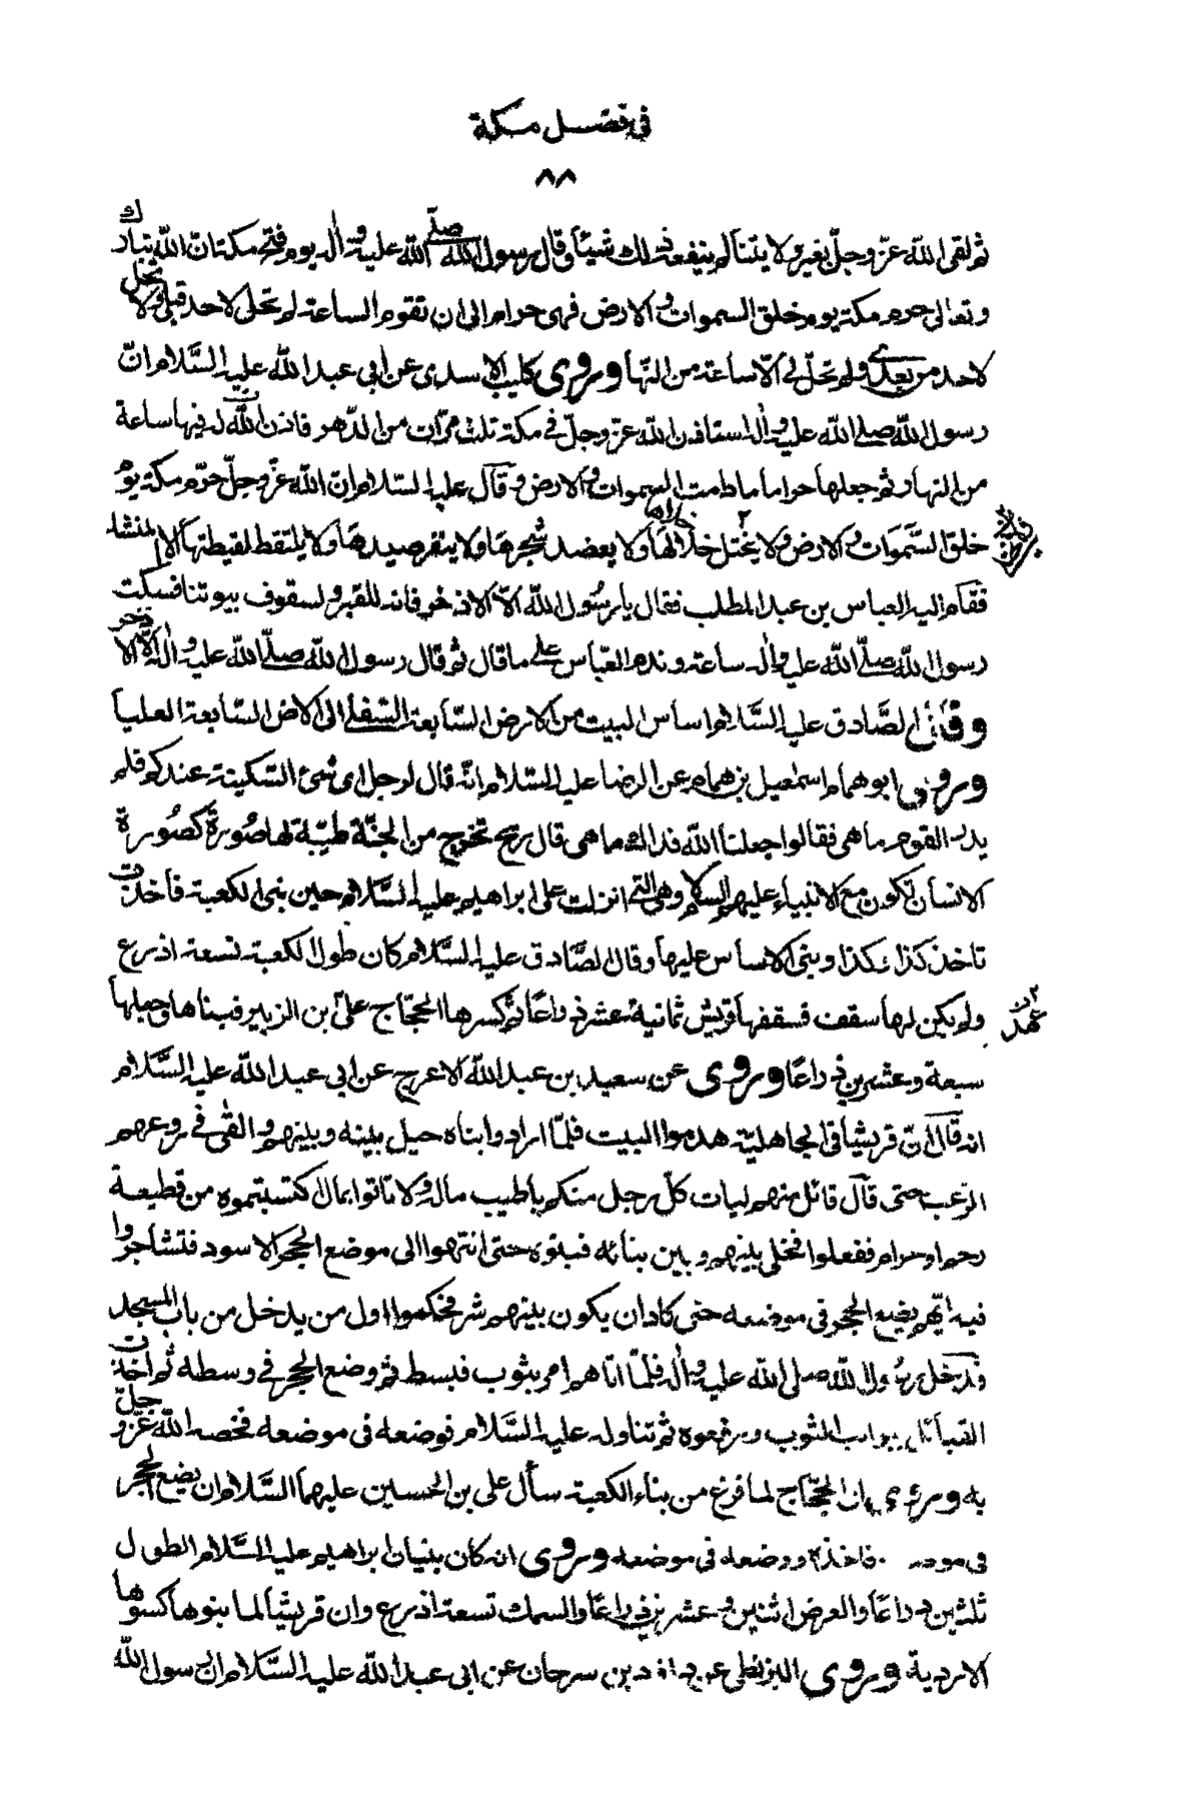 فى فضل مكة
٨٨
ثم لقى الله عزّ وجلّ بغير ولايتنا لم ينفعه ذلك شيئا وقال رسول الله صلّى الله عليه وآله يوم فتح مكة ان الله تبارك
وتعالى حرم مكة يوم خلق السموات والارض فهى حرام الى ان تقوم الساعة لم تحل لاحد قبلى ولا تحل
لاحد من بعدى ولم تحلّ لى الّا ساعة من النهار وروى كليب الاسدى عن ابى عبد الله عليه السَّلام انّ
رسول الله صلى الله عليه وآله استاذن الله عزّ وجلّ فى مكة ثلث مرّات من الدّهر فاذن الله له فيها ساعة
من النهار ثم جعلها حراما ما دامت السموات والارض وقال عليه السّلام ان الله عزّ وجلّ حرّم مكة يوم
خلق السَّموات والارض ولا يختل خلاها ولا يعضد شجرها ولا ينفر صيدها ولا يلتقط لقيطتها الا لمنشد
فقام اليه العباس بن عبد المطلب فقال يا رسُول الله الّا الاذخر فانه للقبر ولسقوف بيوتنا فسكت
رسول الله صلّى الله عليه وآله ساعة وندم العبّاس على ما قال ثم قال رسول الله صلّى الله عليه وآله الّا الاذخر
وقال الصَّادق عليه السَّلام اساس البيت من الارض السّابعة السّفلى الى الارض السّابعة العليا
وروى ابو همام اسمٰعيل بن همام عن الرضا عليه السّلام انّه قال لرجل اى شئ السّكينة عندكم فلم
يدر القوم ما هى فقالوا جعلنا الله فداك ما هى قال ريح تخرج من الجنّة طيّبة لها صُورة كصُورة
الانسان تكون مع الانبياء عليهم السلام وهى التى انزلت على ابراهيم عليه السَّلام حين بنى الكعبة فاخذت
تاخذ كذا وكذا وبنى الاساس عليها وقال الصَّادق عليه السَّلام كان طول الكعبة تسعة اذرع
ولم يكن لها سقف فسقفها قريش ثمانية عشر ذراعًا ثم كسرها الحجّاج علىٰ بن الزبير فبناها وجعلها
سبعة وعشرين ذراعًا وروى عن سعيد بن عبد الله الاعرج عن ابى عبد الله عليه السَّلام
انه قال انّ قريشا فى الجاهليّة هدموا البيت فلمّا ارادوا بناه حيل بينه وبينهم والقى فى روعهم
الرّعب حتى قال قائل منهم ليات كلّ رجل منكم باطيب ماله ولا تاتوا بمال اكتسبتموه من قطيعة
رحم او حرام ففعلوا فخلى بينهم وبين بنائه فبنوه حتى انتهوا الى موضع الحجر الاسود فتشاجروا
فيه ايّهم يضع الحجر فى موضعه حتى كاد ان يكون بينهم شر فحكموا اول من يدخل من باب المسجد
فدخل رسُول الله صلى الله عليه وآله فلمّا اتاهم امر بثوب فبسط ثم وضع الحجر فى وسطه ثم اخذت
القبائل بجوانب الثوب ورفعوه ثم تناوله عليه السَّلام فوضعه فى موضعه فخصه الله عزّ وجلّ
به وروى ان الحجّاج لما فرغ من بناء الكعبة سأل على بن الحسين عليهما السَّلام ان يضع الحجر
فى موضعه فاخذه ووضعه فى موضعه وروى انه كان بنيان ابراهيم عليه السَّلام الطول
ثلثين ذراعًا والعرض اثنين وعشرين ذراعًا والسمك تسعة اذرع وان قريشا لما بنوها كسوها
الاردية وروى البزنطى عن داود بن سرحان عن ابى عبد الله عليه السَّلام ان رسول الله